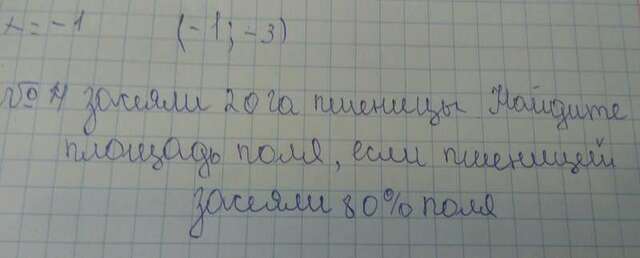 x = -1 (-1; -3)
№ 4 засеяли 20 га пшеницы Найдите
площадь поля, если пшеницей
засеяли 80% поля